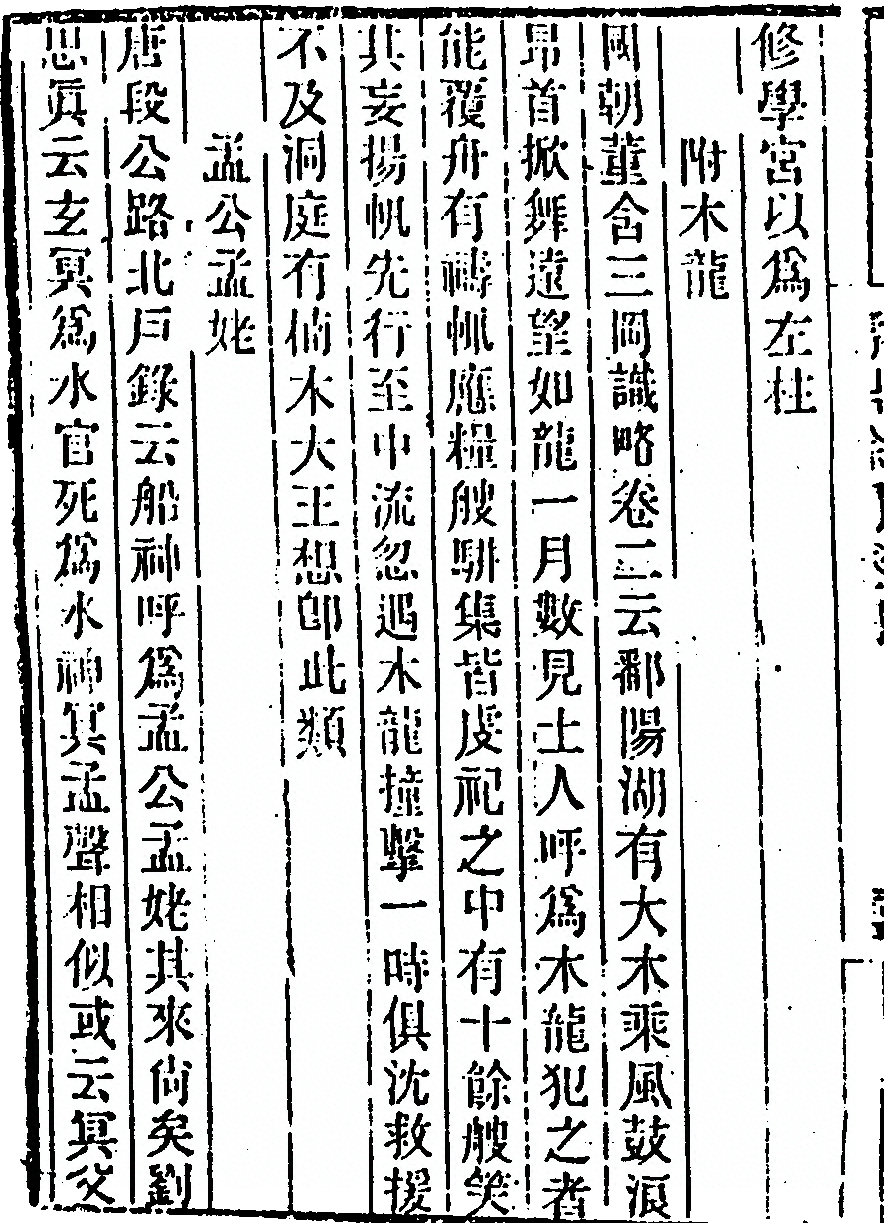 修學宮以爲左柱
附木龍
國朝董含三岡識略卷二云鄱陽湖有大木乘風鼓浪
昂首掀舞遠望如龍一月數見土人呼爲木龍犯之者
能覆舟有禱輒應糧艘駢集皆虔祀之中有十餘艘笑
其妄揚帆先行至中流忽遇木龍撞擊一時俱沈救援
不及洞庭有楠木大王想卽此類
孟公孟姥
唐段公路北戶錄云船神呼爲孟公孟姥其來尙矣劉
思眞云玄冥爲水官死爲水神冥孟聲相似或云冥父